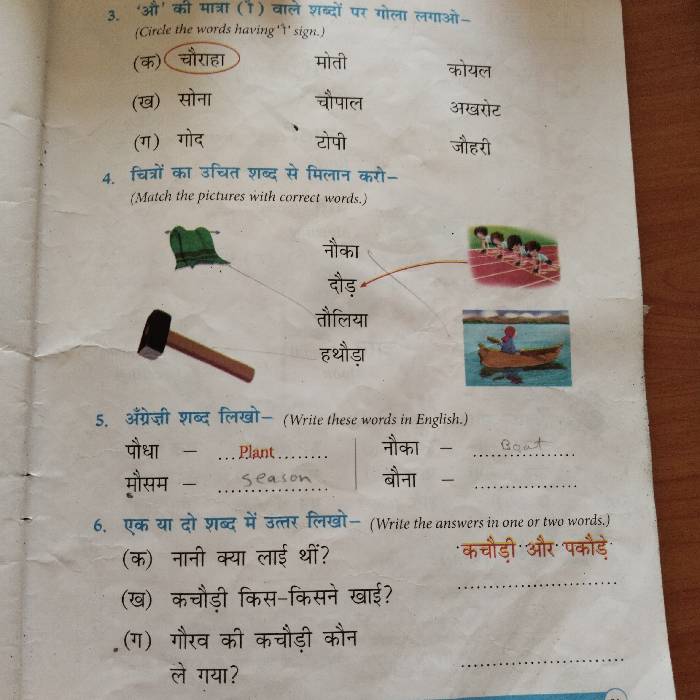 3. 'औ' की मात्रा (ौ) वाले शब्दों पर गोला लगाओ–
(Circle the words having 'ौ' sign.)
(क) चौराहा मोती कोयल
(ख) सोना चौपाल अखरोट
(ग) गोद टोपी जौहरी
4. चित्रों का उचित शब्द से मिलान करो–
(Match the pictures with correct words.)
नौका
दौड़
तौलिया
हथौड़ा
5. अँग्रेज़ी शब्द लिखो– (Write these words in English.)
पौधा – ...Plant........ नौका – Boat
मौसम – season बौना – ..................
6. एक या दो शब्द में उत्तर लिखो– (Write the answers in one or two words.)
(क) नानी क्या लाई थीं? कचौड़ी और पकौड़े
(ख) कचौड़ी किस-किसने खाई? ............................
(ग) गौरव की कचौड़ी कौन
ले गया? ............................